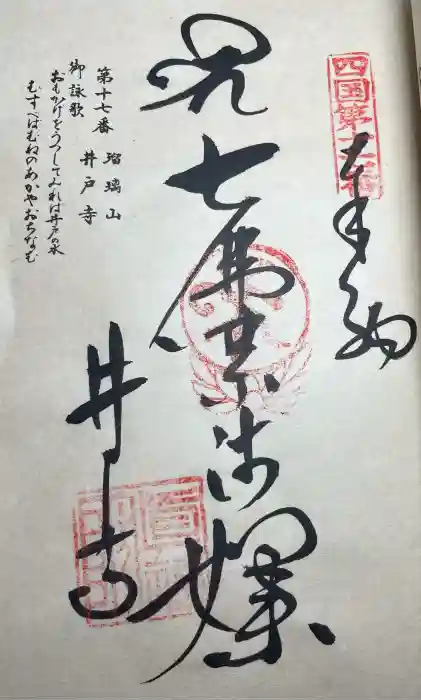 四国第十七番
奉納
七佛薬師
井戸寺
第十七番 瑠璃山
井戸寺
御詠歌
おもかげをうつしてみれば井戸の水
むすべばむねのあかやおちなむ